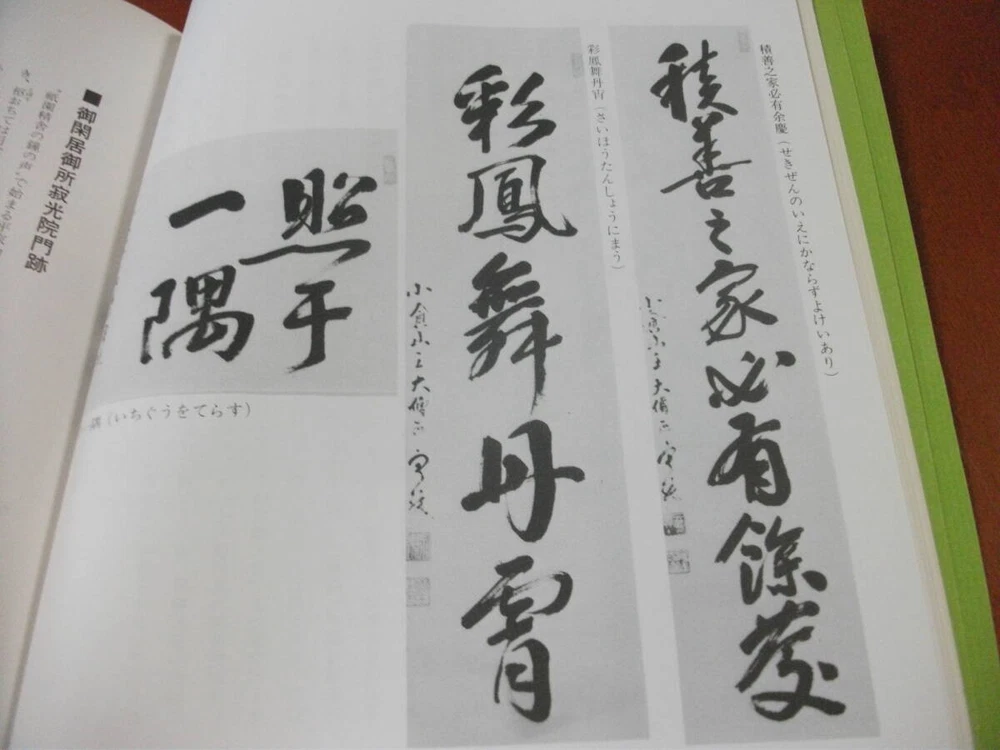 積善之家必有余慶（せきぜんのいえにかならずよけいあり）
積善之家必有餘慶
彩鳳舞丹霄（さいほうたんしょうにまう）
彩鳳舞丹霄
小倉山主大僧正
照于
一隅
隅（いちぐうをてらす）
■御閑居御所寂光院門跡
“祇園精舎の鐘の声”で始まる平家